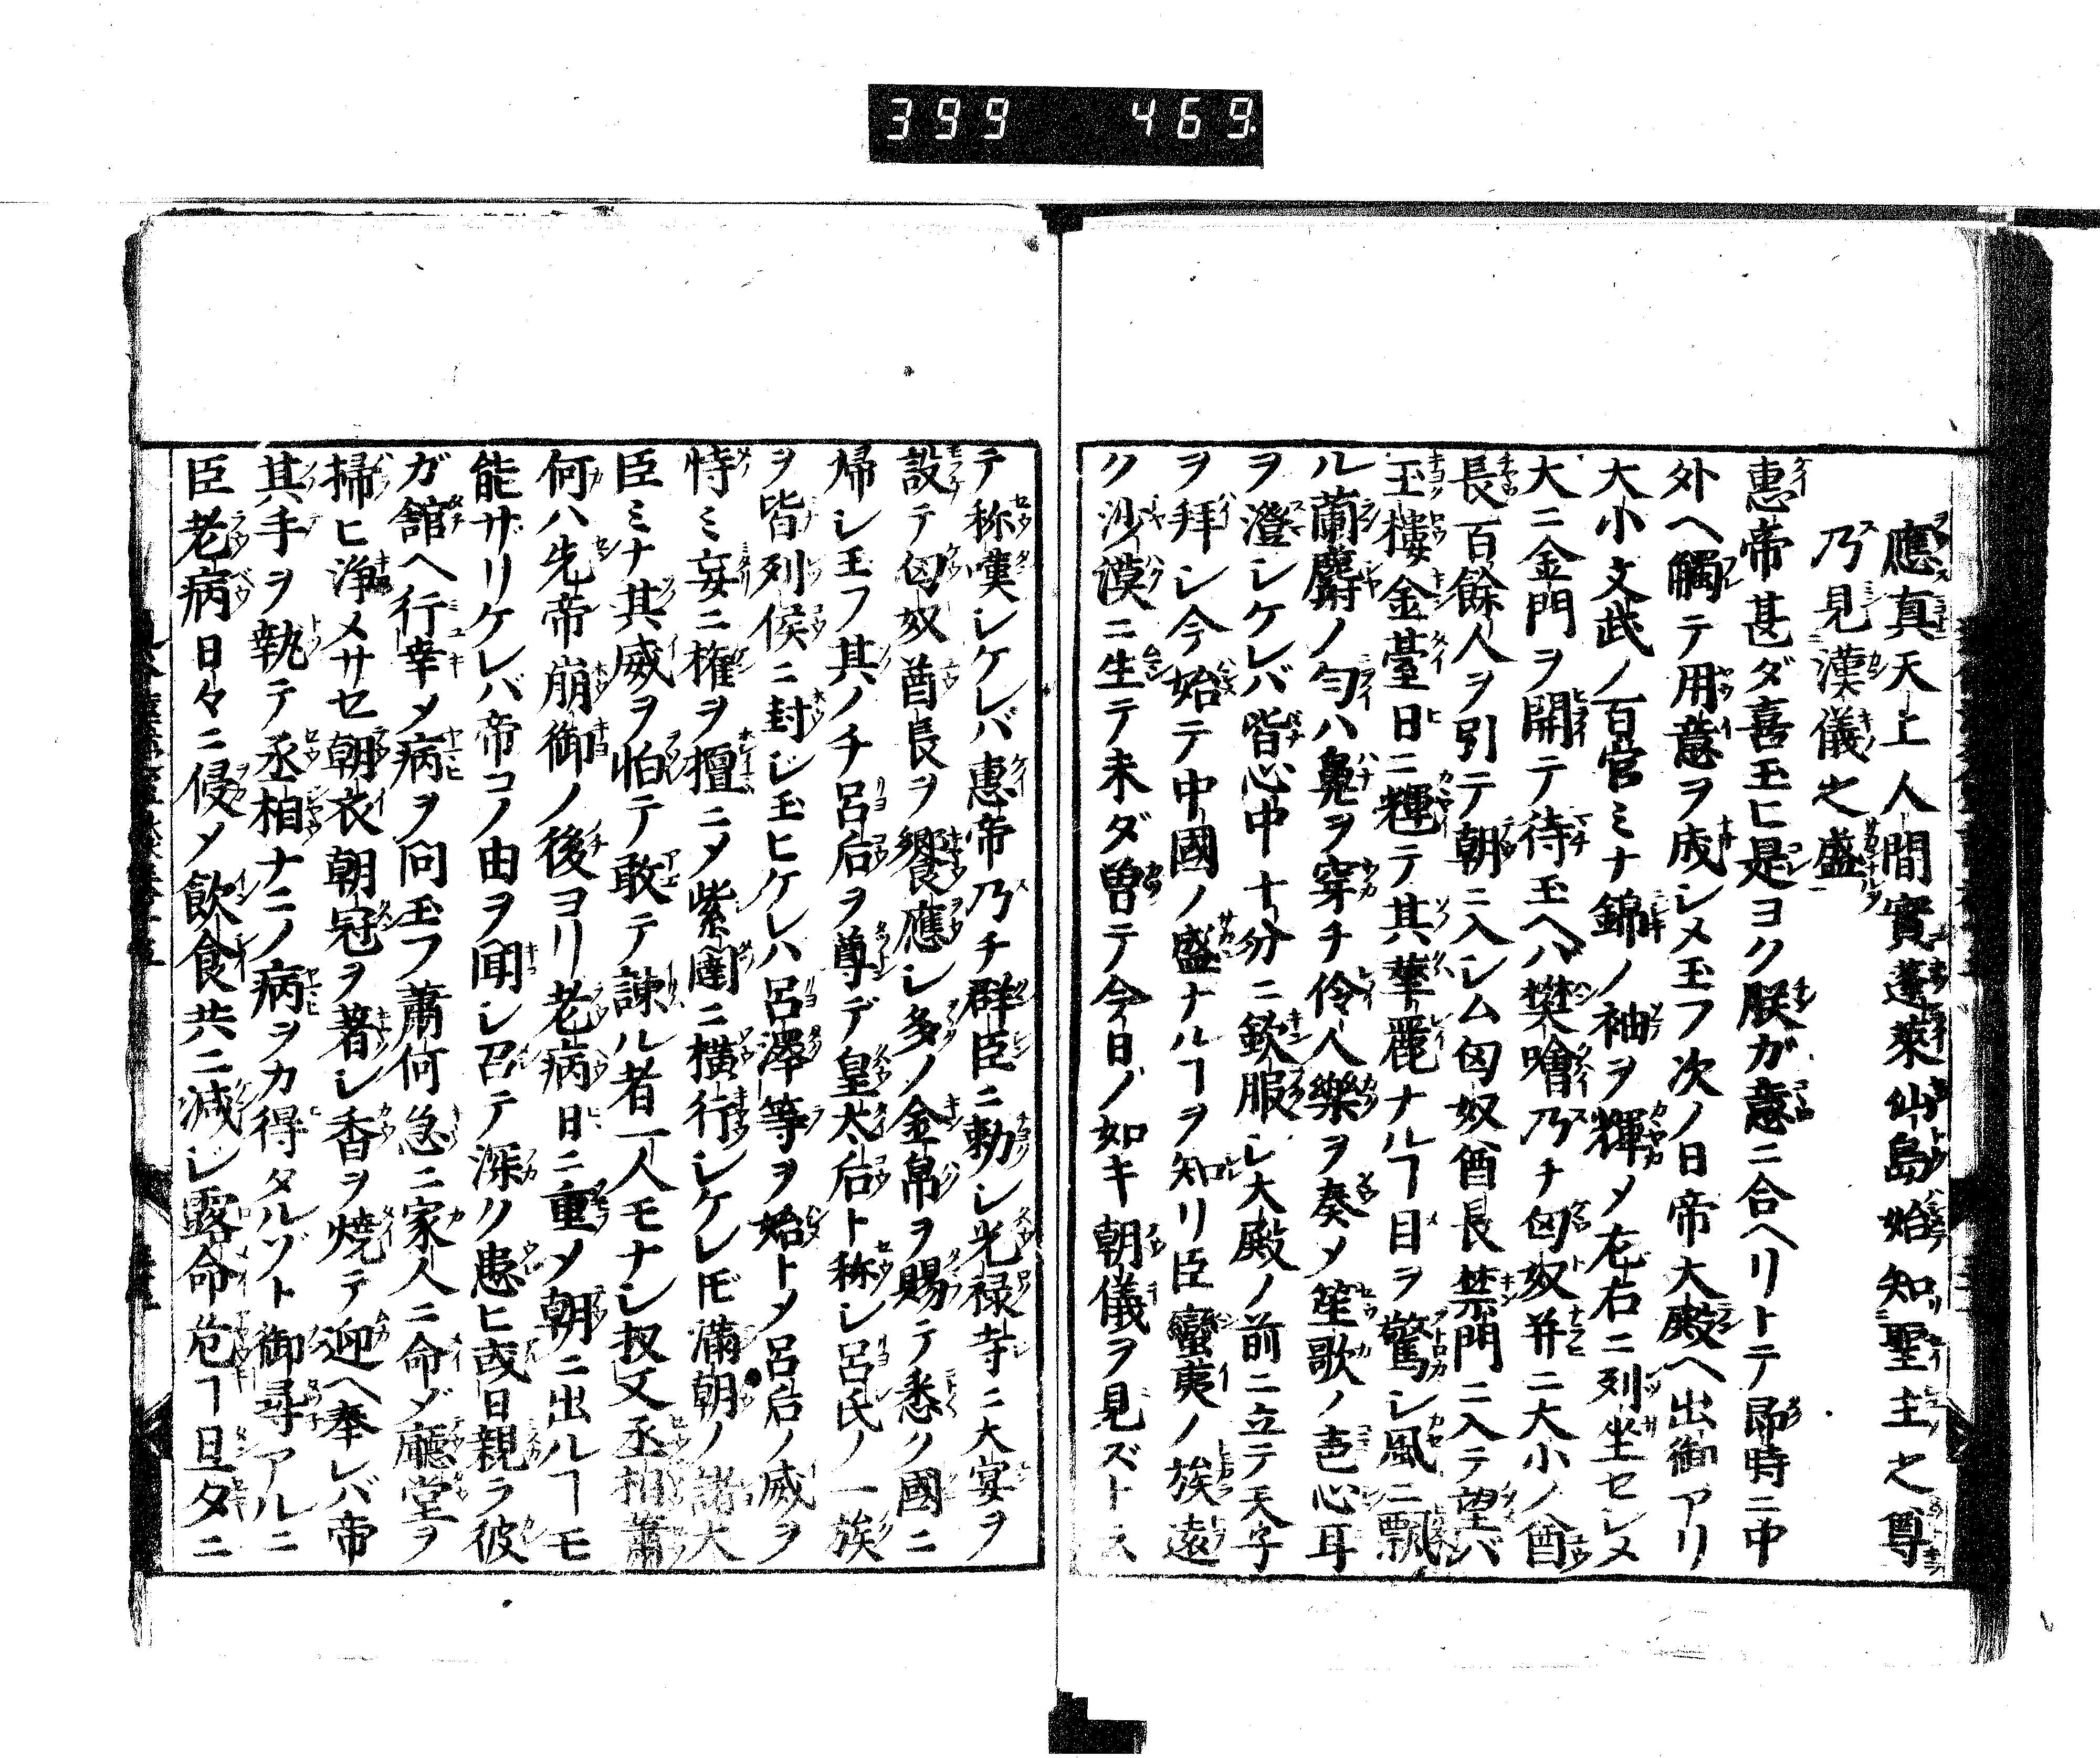 399 469
應真天上人間實蓬萊仙島始知聖主之尊
乃見漢儀之盛
惠帝甚ダ喜玉ヒ是ヨク朕ガ意ニ合ヘリトテ即時ニ中
外ヘ觸テ用意ヲ成シメ玉フ次ノ日帝大殿ヘ出御アリ
大小文武ノ百官ミナ錦ノ袖ヲ輝メ左右ニ列坐セシメ
大ニ金門ヲ開テ待玉ヘバ樊噲乃チ匈奴并ニ大小ノ酋
長百餘人ヲ引テ朝ニ入シム匈奴酋長禁門ニ入テ望バ
玉樓金臺日ニ輝テ其華麗ナルヿ目ヲ驚シ風ニ飄
ル蘭麝ノ匂ハ鼻ヲ穿チ伶人樂ヲ奏メ笙歌ノ声心耳
ヲ澄シケレバ皆心中十分ニ欽服シ大殿ノ前ニ立テ天子
ヲ拜シ今始テ中國ノ盛ナルヿヲ知リ臣蠻夷ノ族遠
ク沙漠ニ生テ未ダ曽テ今日ノ如キ朝儀ヲ見ズト云
テ称嘆シケレバ惠帝乃チ群臣ニ勅シ光禄寺ニ大宴ヲ
設テ匈奴酋長ヲ饗應シ多ノ金帛ヲ賜テ悉ク國ニ
帰シ玉フ其ノチ呂后ヲ尊デ皇太后ト称シ呂氏ノ一族
ヲ皆列侯ニ封ジ玉ヒケレハ呂澤等ヲ始トメ呂后ノ威ヲ
恃ミ妄ニ権ヲ擅ニメ紫闥ニ横行シケレ𪜈滿朝ノ諸大
臣ミナ其威ヲ怕テ敢テ諌ル者一人モナシ扨又丞相蕭
何ハ先帝崩御ノ後ヨリ老病日ニ重メ朝ニ出ルヿモ
能ザリケレバ帝コノ由ヲ聞シ召テ深ク患ヒ或日親ラ彼
ガ舘ヘ行幸メ病ヲ问玉フ蕭何急ニ家人ニ命ジ廳堂ヲ
掃ヒ浄メサセ朝衣朝冠ヲ著シ香ヲ焼テ迎ヘ奉レバ帝
其手ヲ執テ丞相ナニノ病ヲカ得タルゾト御尋アルニ
臣老病日々ニ侵メ飲食共ニ减ジ露命危ヿ旦夕ニ